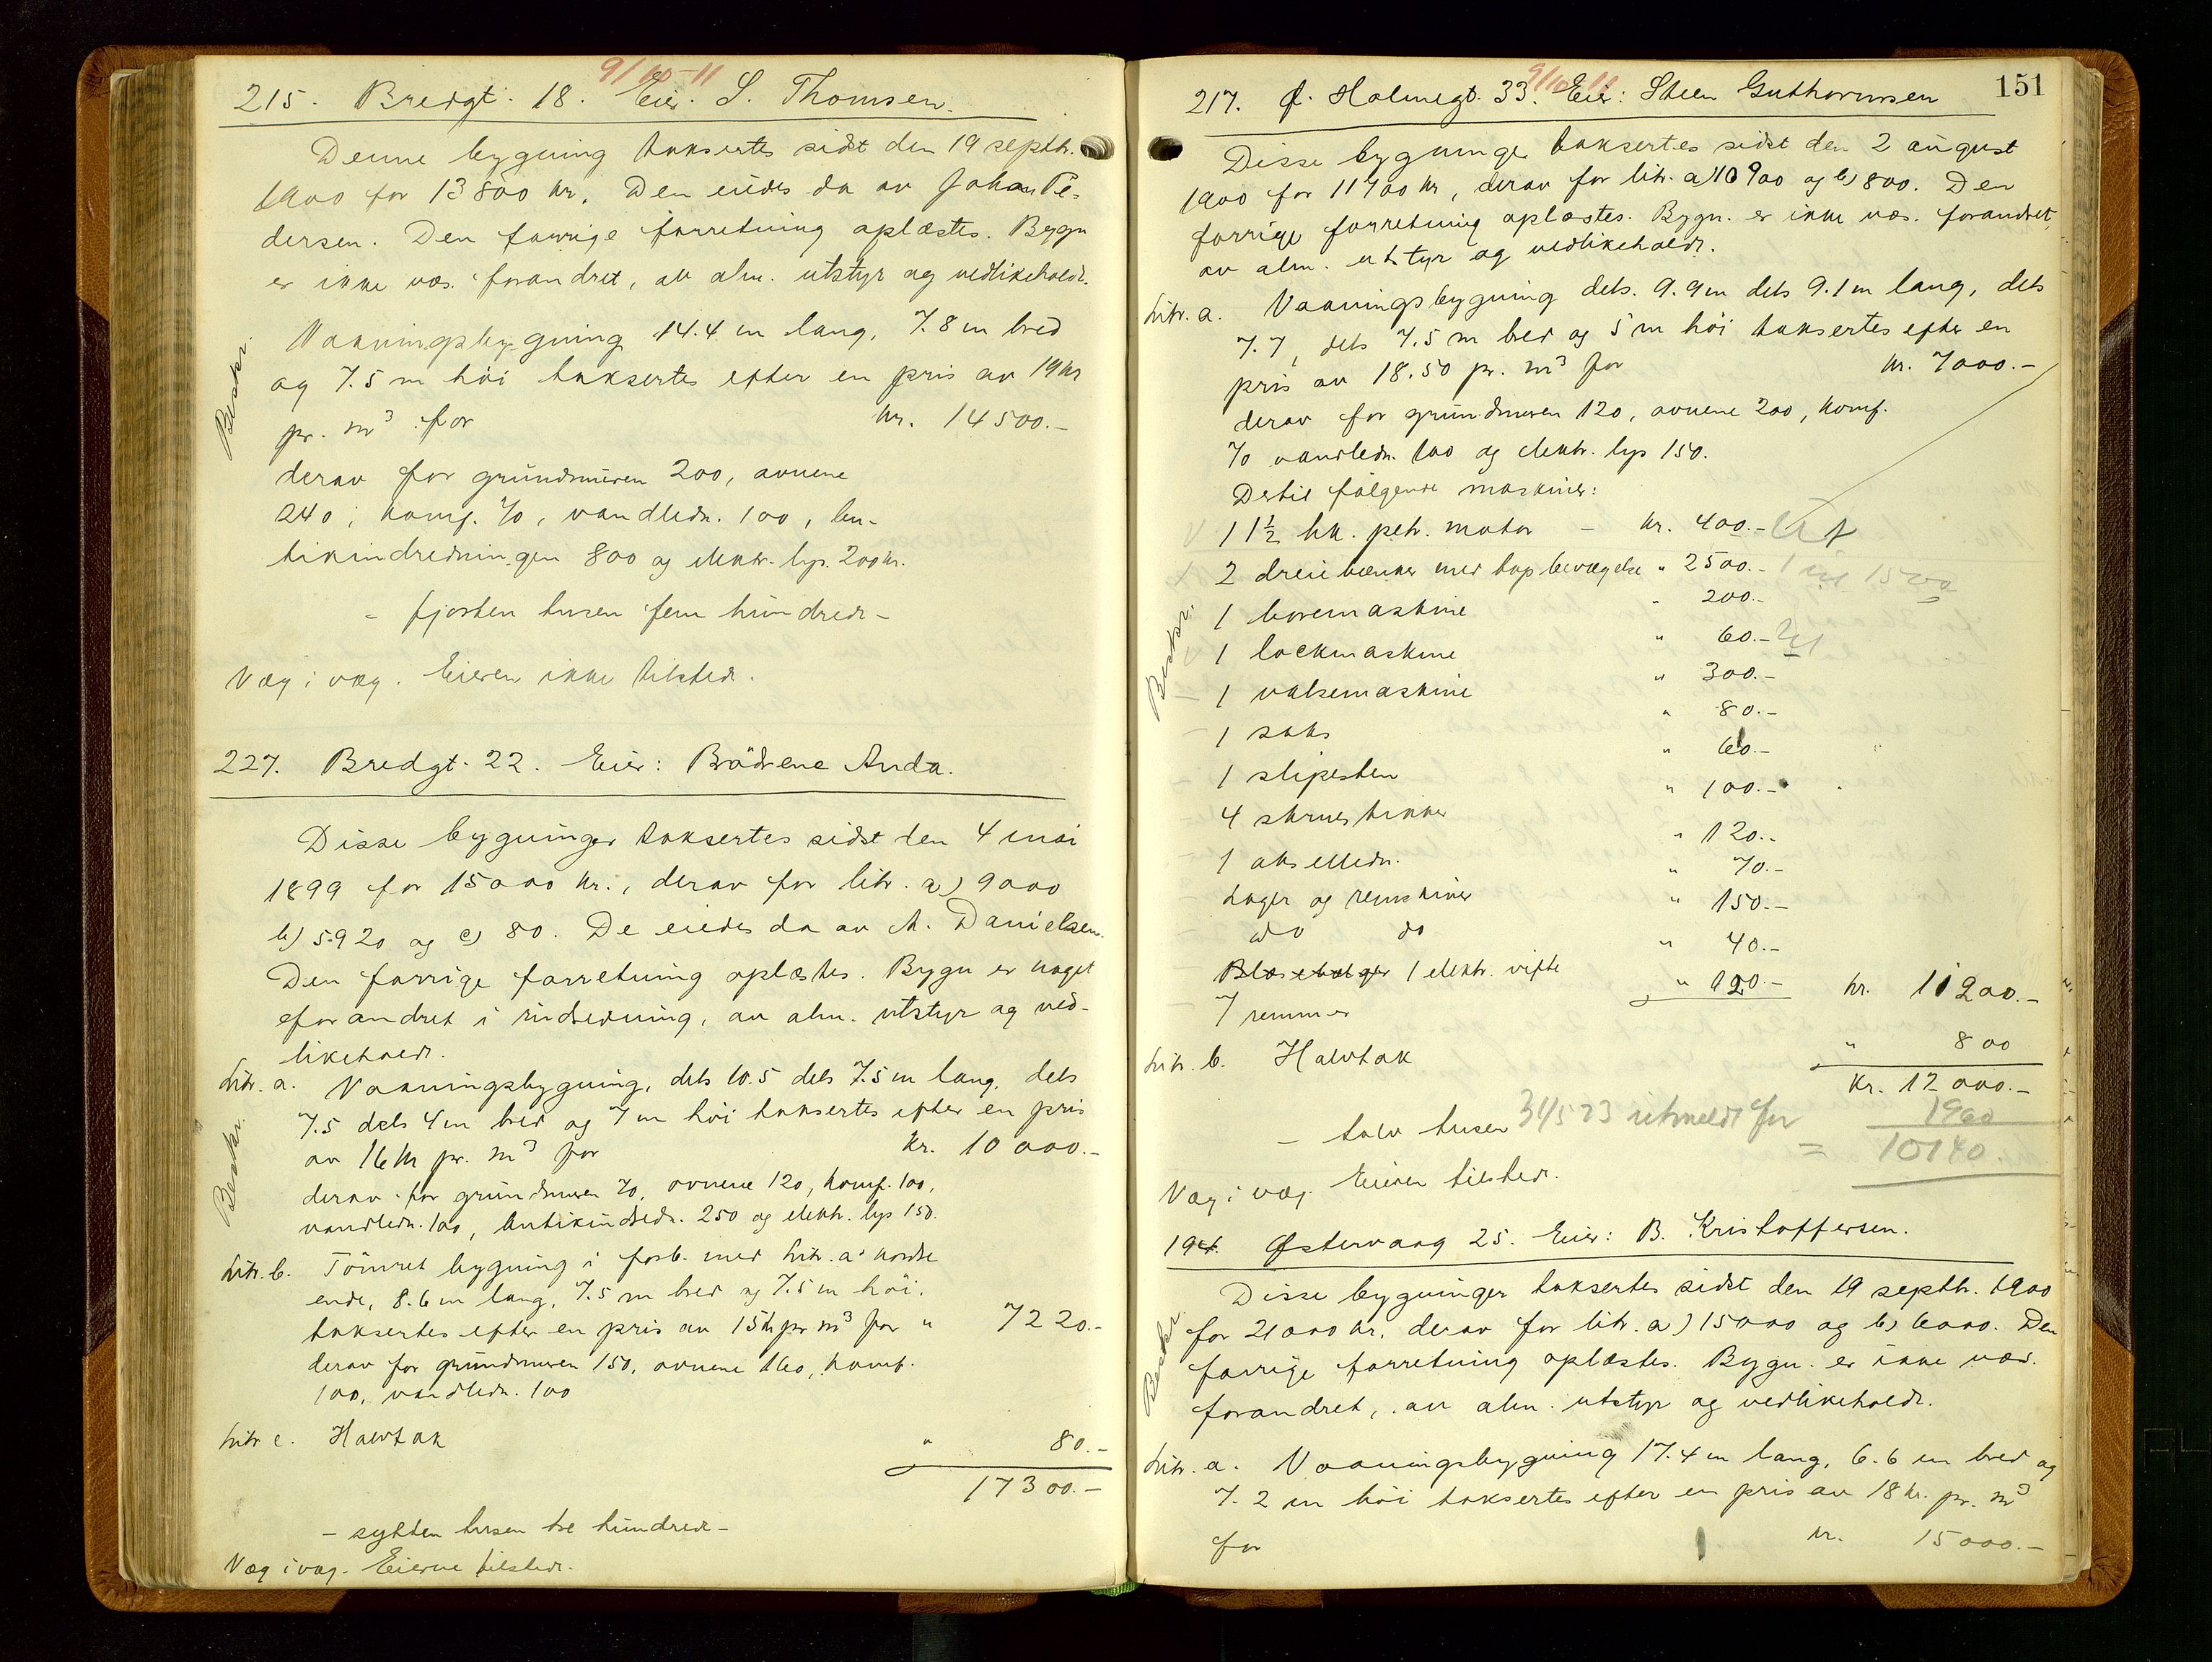 9/10-11
215. Bredgt. 18. Eier. S. Thomsen.
Denne bygning taksertes sidst den 19 septbr.
1900 for 13800 kr. Den eiedes da av Johan Pe-
dersen. Den forrige forretning oplæstes. Bygn
er ikke væs. forandret, av alm. utstyr og vedlikeholdt.
Beskr.
Vaaningsbygning 14.4 m lang, 7.8 m bred
og 7.5 m höi taksertes efter en pris av 19 kr
pr. m³ for kr. 14500.-
derav for grundmuren 200, ovnene
240, komf. 70, vandledn. 100, bu-
tikindredningen 800 og elektr. lys 200 kr.
- fjorten tusen fem hundrede -
Væg i væg. Eieren ikke tilstede.
227. Bredgt. 22. Eier: Brödrene Anda.
Disse bygninger taksertes sidst den 4 mai
1899 for 15000 kr., derav for litr. a) 9000
b) 5920 og c) 80. De eiedes da av A. Danielsen.
Den forrige forretning oplæstes. Bygn er noget
forandret i indredning, av alm. utstyr og ved-
likeholdt.
Beskr.
Litr. a. Vaaningsbygning, dels 10.5 dels 7.5 m lang, dels
7.5 dels 4 m bred og 7 m höi taksertes efter en pris
av 16 kr pr. m³ for kr. 10000.-
derav for grundmuren 70, ovnene 120, komf. 100,
vandledn. 100, butikindredn. 250 og elektr. lys 150.
Litr. b. Tömret bygning i forb. med litr. a' nordre
ende, 8.6 m lang, 7.5 m bred og 7.5 m höi,
taksertes efter en pris av 15 kr pr m³ for " 7220.-
derav for grundmuren 150, ovnene 160, komf.
100, vandledn. 100
Litr c. Halvtak " 80.-
17300.-
- sytten tusen tre hundrede -
Væg i væg. Eierne tilstede.
151
9/10 11
217. Ø. Holmegt. 33. Eier: Steen Guthormsen
Disse bygninger taksertes sidst den 2 august
1900 for 11700 kr, derav for litr. a) 10900 og b) 800. Den
forrige forretning oplæstes. Bygn. er ikke væs. forandret,
av alm. utstyr og vedlikeholdt.
Litr. a. Vaaningsbygning dels. 9.9 m dels 9.1 m lang, dels
7.7, dels 7.5 m bred og 5 m höi taksertes efter en
pris av 18.50 pr. m³ for kr. 7000.-
derav for grundmuren 120, ovnene 200, komf.
70 vandledn. 100 og elektr. lys 150.
Dertil følgende maskiner:
Beskr.
1 1½ hk. petr. motor - kr. 400.- Ut
2 dreiebænker med tapbevægelse " 2500.- 1 ut 1500
1 boremaskine " 200.-
1 lockmaskine " 60.- Ut
1 valsemaskine " 300.-
1 saks " 80.-
1 slipesten " 60.-
4 skruestikker " 100.-
1 akselledn. " 120.-
Lager og remskiver " 70.-
do do " 150.-
Blæsebælger 1 elektr. vifte " 40.-
7 remmer " 120.- kr. 11200.-
Litr. b. Halvtak " 800
Kr. 12000.-
- tolv tusen 31/5 23 utmeldt for 1960
= 10140.
Væg i væg. Eieren tilstede.
Østervaag 25. Eier: B. Kristoffersen.
Beskr
Disse bygninger taksertes sidst den 19 septbr. 1900
for 21000 kr. derav for litr. a) 15000 og b) 6000. Den
forrige forretning oplæstes. Bygn. er ikke væs.
forandret, av alm. utstyr og vedlikeholdt.
Litr. a. Vaaningsbygning 17.4 m lang, 6.6 m bred og
7.2 m höi taksertes efter en pris av 18 kr. pr. m³
for kr. 15000.-